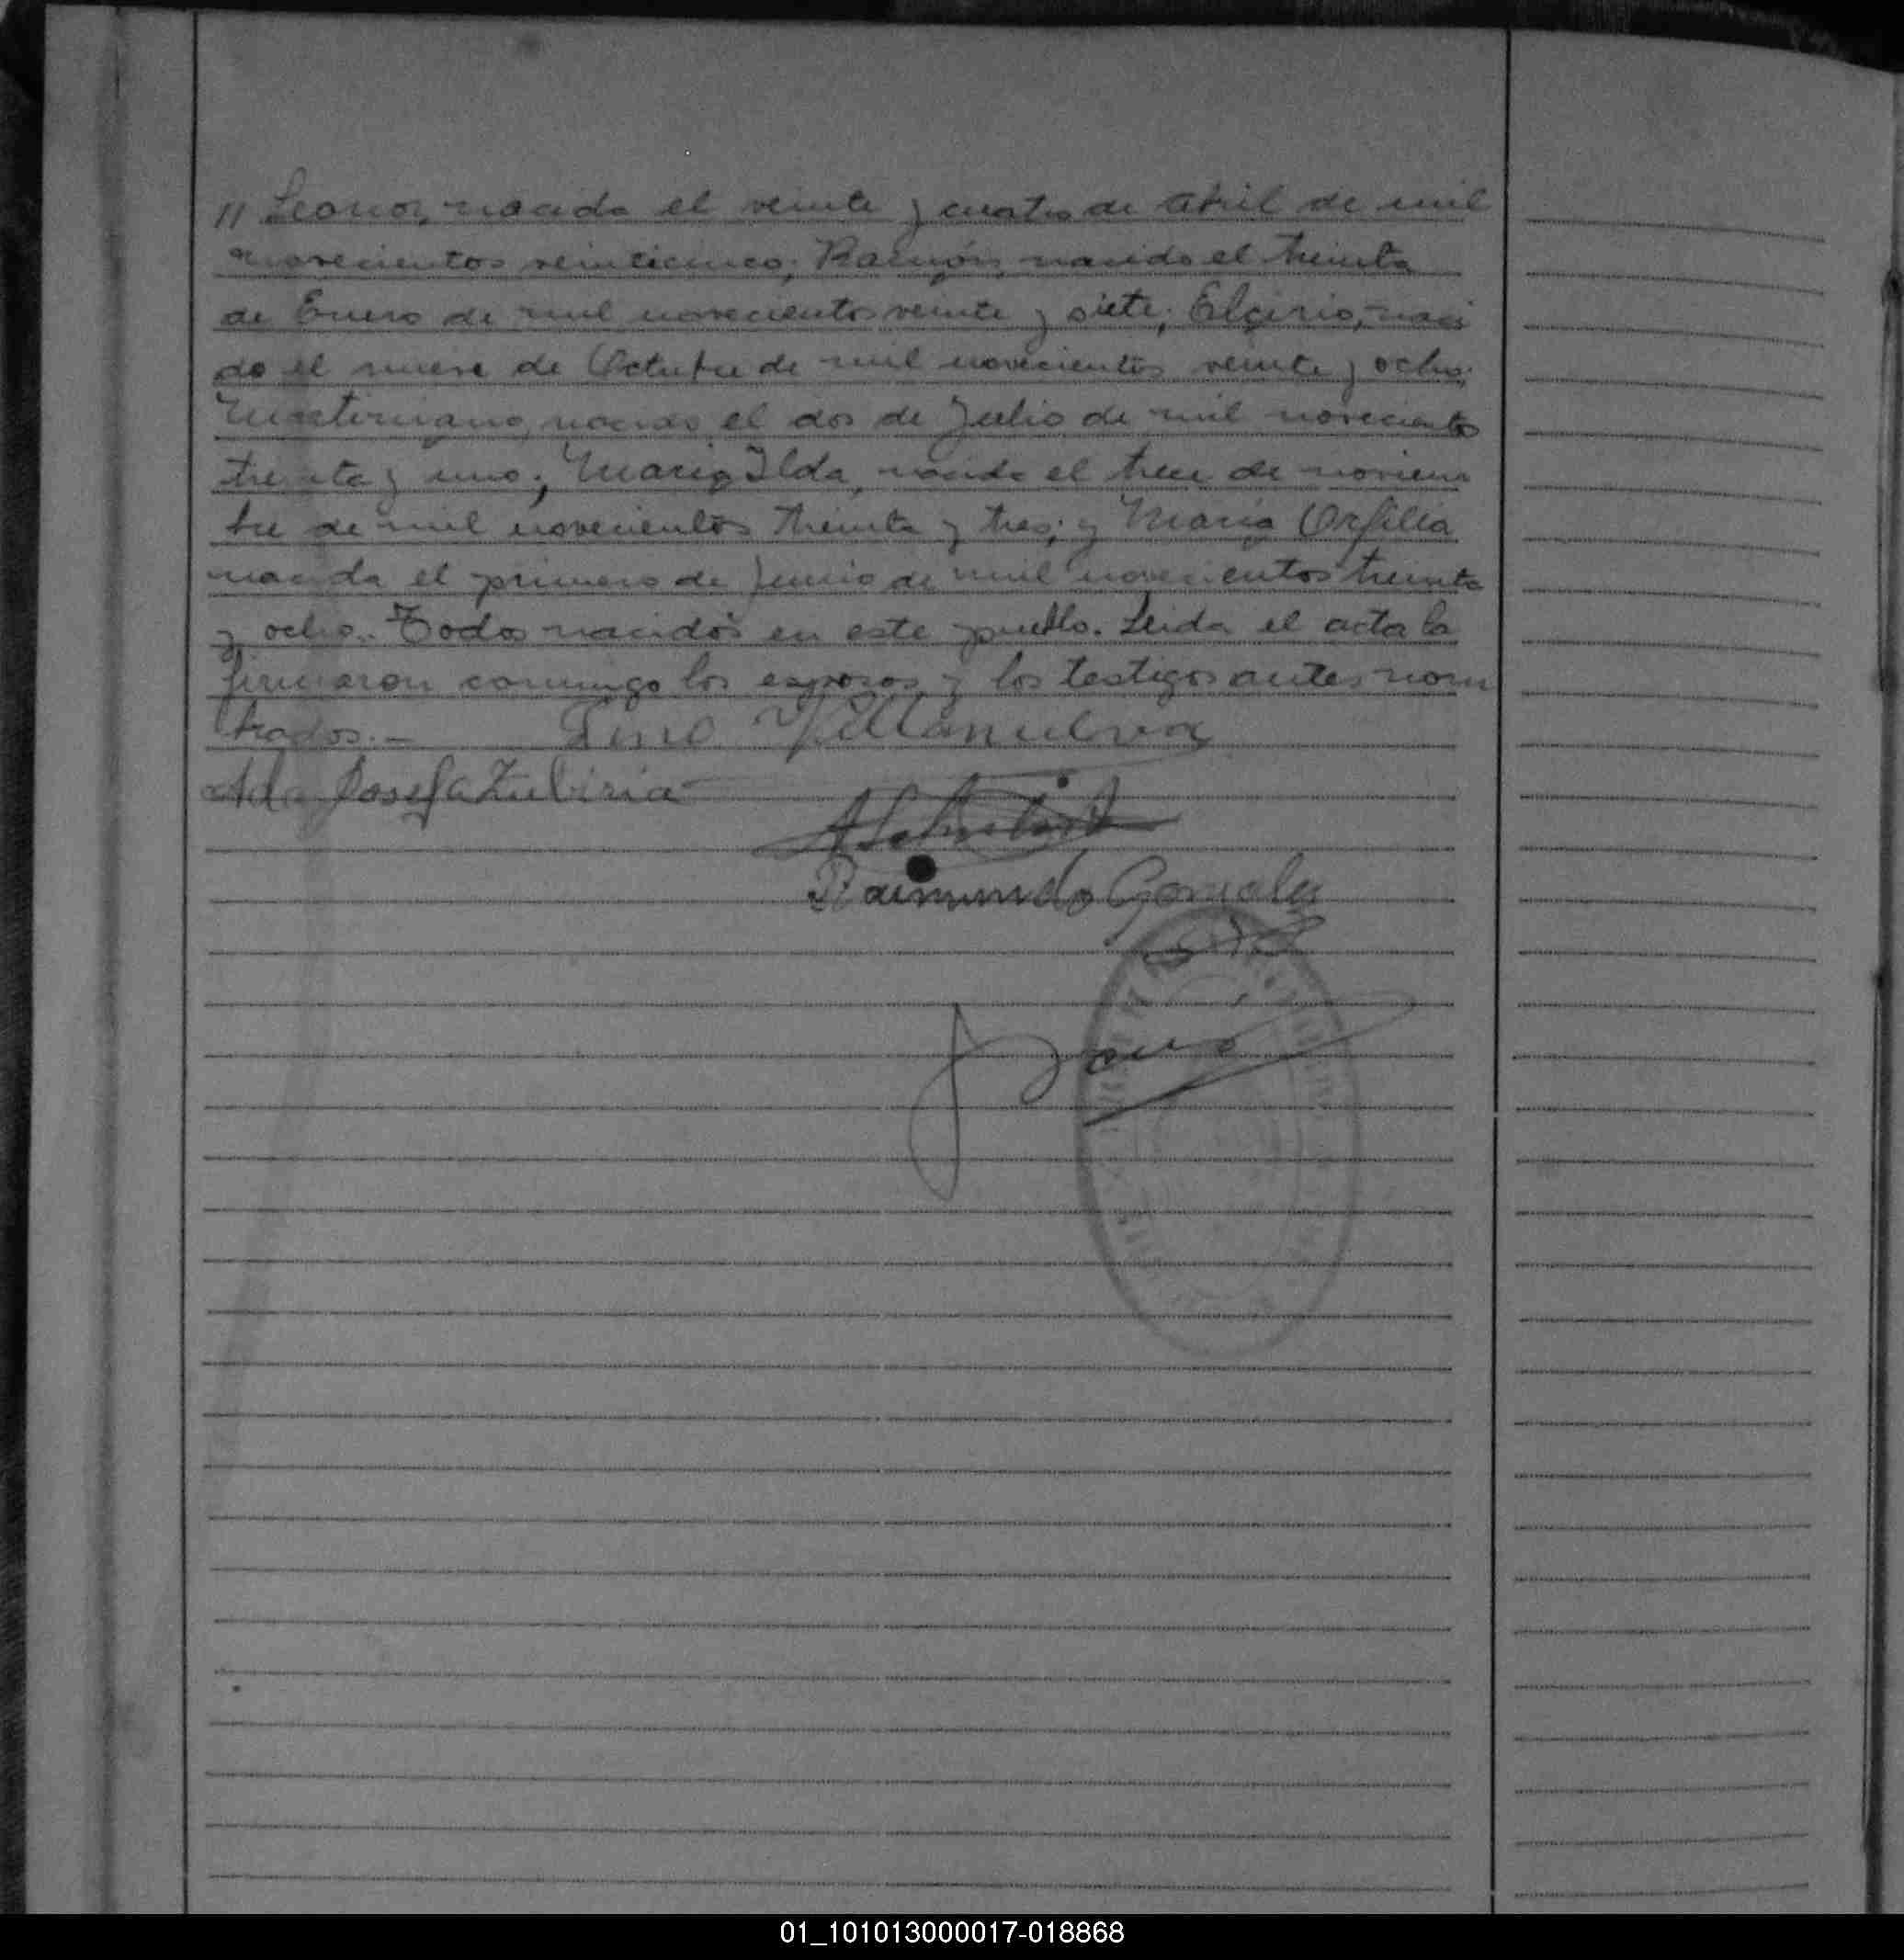 " Leonor, nacida el veinte y cuatro de abril de mil
novecientos veinticinco; Ramón, nacido el treinta
de Enero de mil novecientos veinte y siete; Elcirio, naci
do el nueve de Octubre de mil novecientos veinte y ocho;
Martiniano, nacido el dos de Julio de mil novecientos
treinta y uno; Maria Ilda, nacida el trece de noviem
bre de mil novecientos treinta y tres; y Maria Orfilia
nacida el primero de Junio de mil novecientos treinta
y ocho. Todos nacidos en este pueblo. Leida el acta la
firmaron conmigo los esposos y los testigos antes nom
brados.—
Lino Villanueva
Ada Josefa Zubiria
Raimundo Gonzalez
01_101013000017-018868